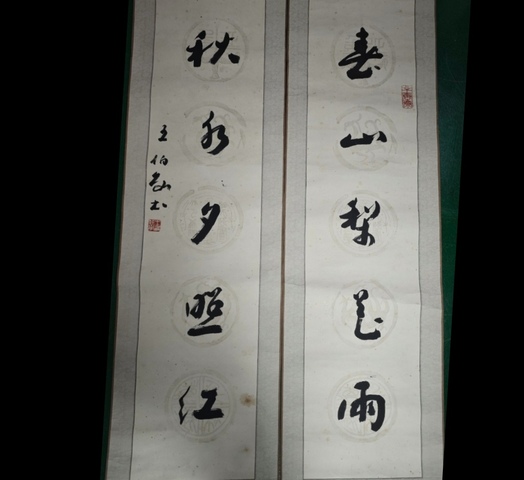 春山梨花雨
秋水夕照红
王伯